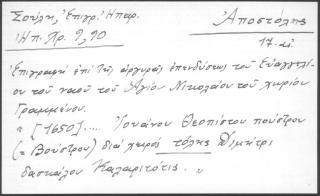 Σούλη, Ἐπιγρ. Ἠπειρ. Ἀποστόλης
Ἠπ. Χρ. 9, 90 17. αἰ.
Ἐπιγραφὴ ἐπὶ τῆς ἀργυρᾶς ἐπενδύσεως τοῦ Εὐαγγελί-
ου τοῦ ναοῦ τοῦ Ἁγίου Νικολάου τοῦ χωρίου
Γραμμένου.
" [1650] .... Ἰουάνου Θεοπίστου πούστρου
(= Βούστρου) διὰ χειρὸς τόλης Διμήτρι
δασκαίλου Καλαριτότις. "